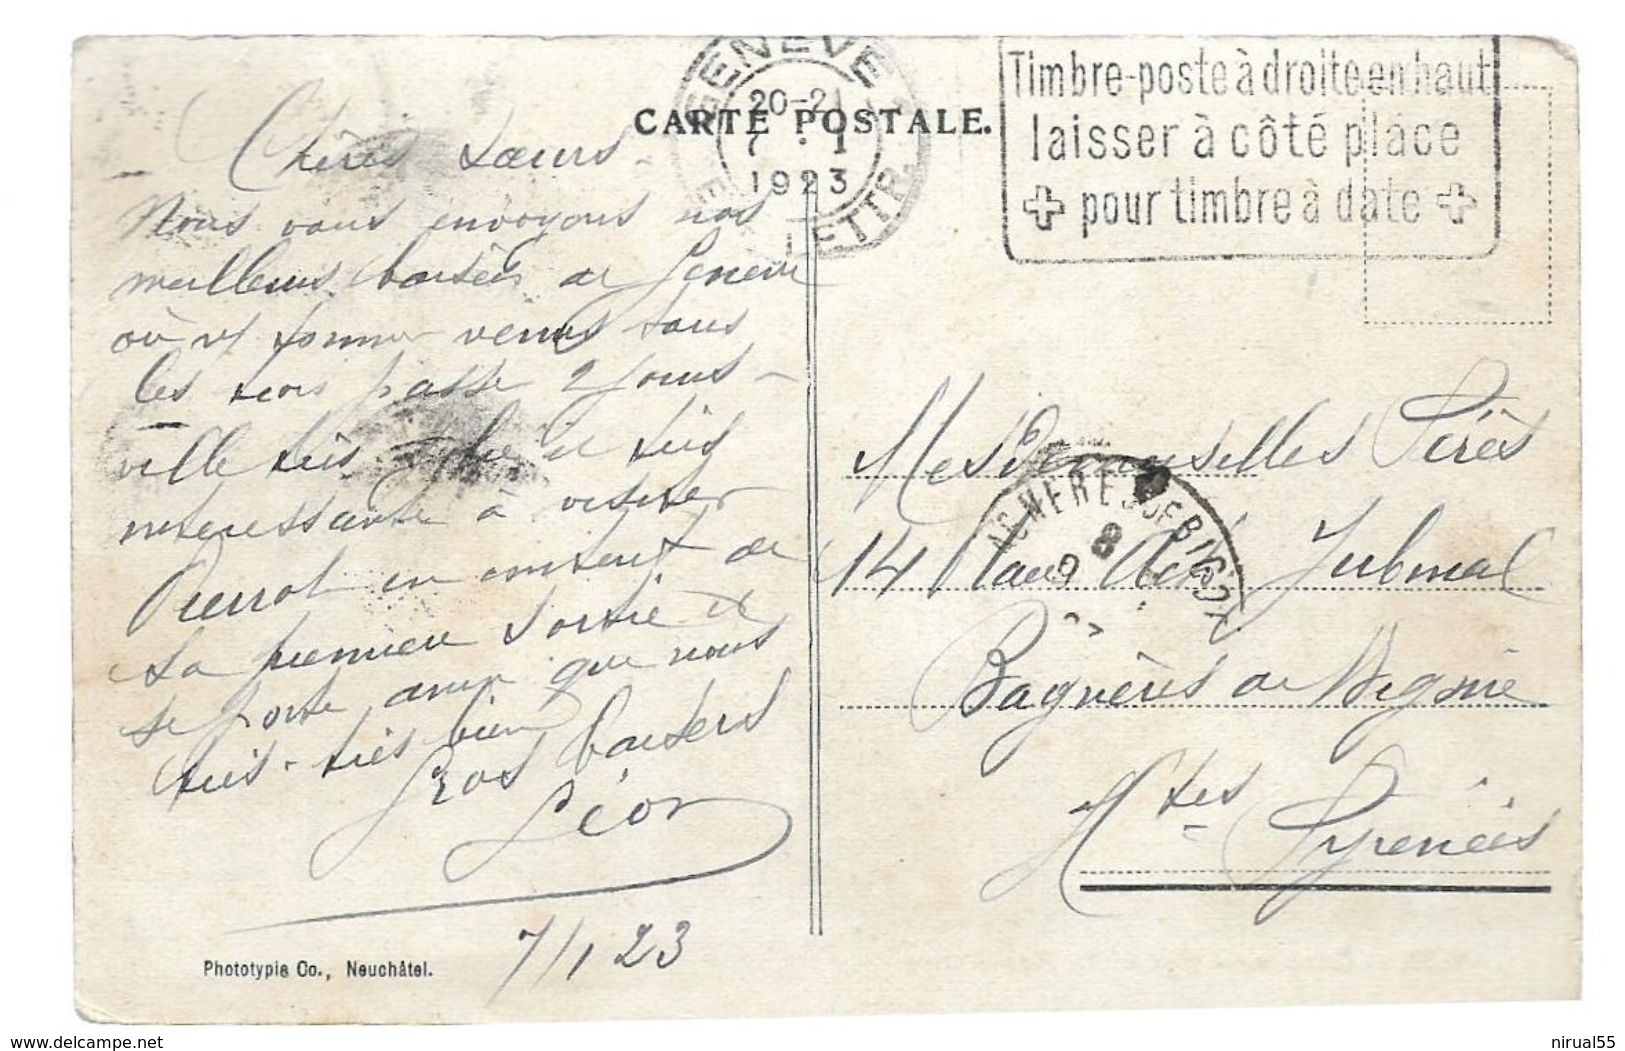 GENEVE
20-21
7 . I
1923
LETTR.
Timbre-poste à droite en haut
laisser à côté place
pour timbre à date
CARTE POSTALE.
Chères Sœurs -
Nous vous envoyons nos
meilleurs baisers de Geneve
où ns sommes venus tous
les trois passer 2 jours -
ville très et très
interessante à visiter
Pierrot en content de
sa première sortie et
se porte ainsi que nous
très - très bien
Gros baisers
Léon
7/1 23
Mesdemoiselles Pérès
14 Place Ach. Jubinal
Bagnères de Bigorre
Htes Pyrénées
AGNERES DE BIGOR
8
Phototypie Co., Neuchâtel.
www.delcampe.net
nirual55